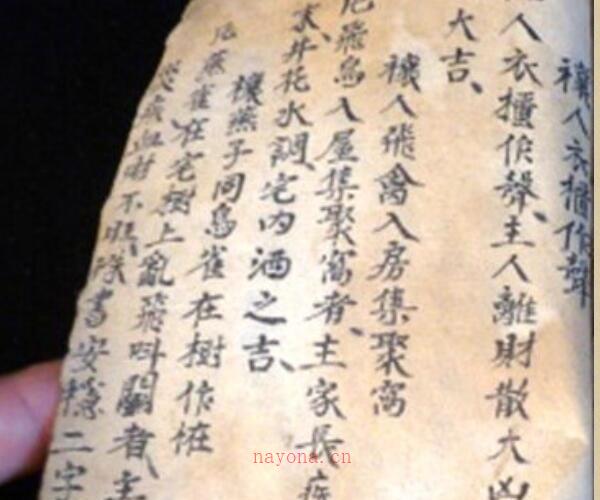 禳人衣櫃作聲
人衣櫃作聲、主人離財散大凶
大吉、
禳人飛禽入房集聚窩
凡飛鳥入屋集聚窩者、主家長疾
井花水調、宅内洒之吉、
禳燕子同鳥雀在樹作怪
凡燕雀在宅樹上亂飛叫鬧者、主
疾血財不旺、書安穩二字
nayona.cn